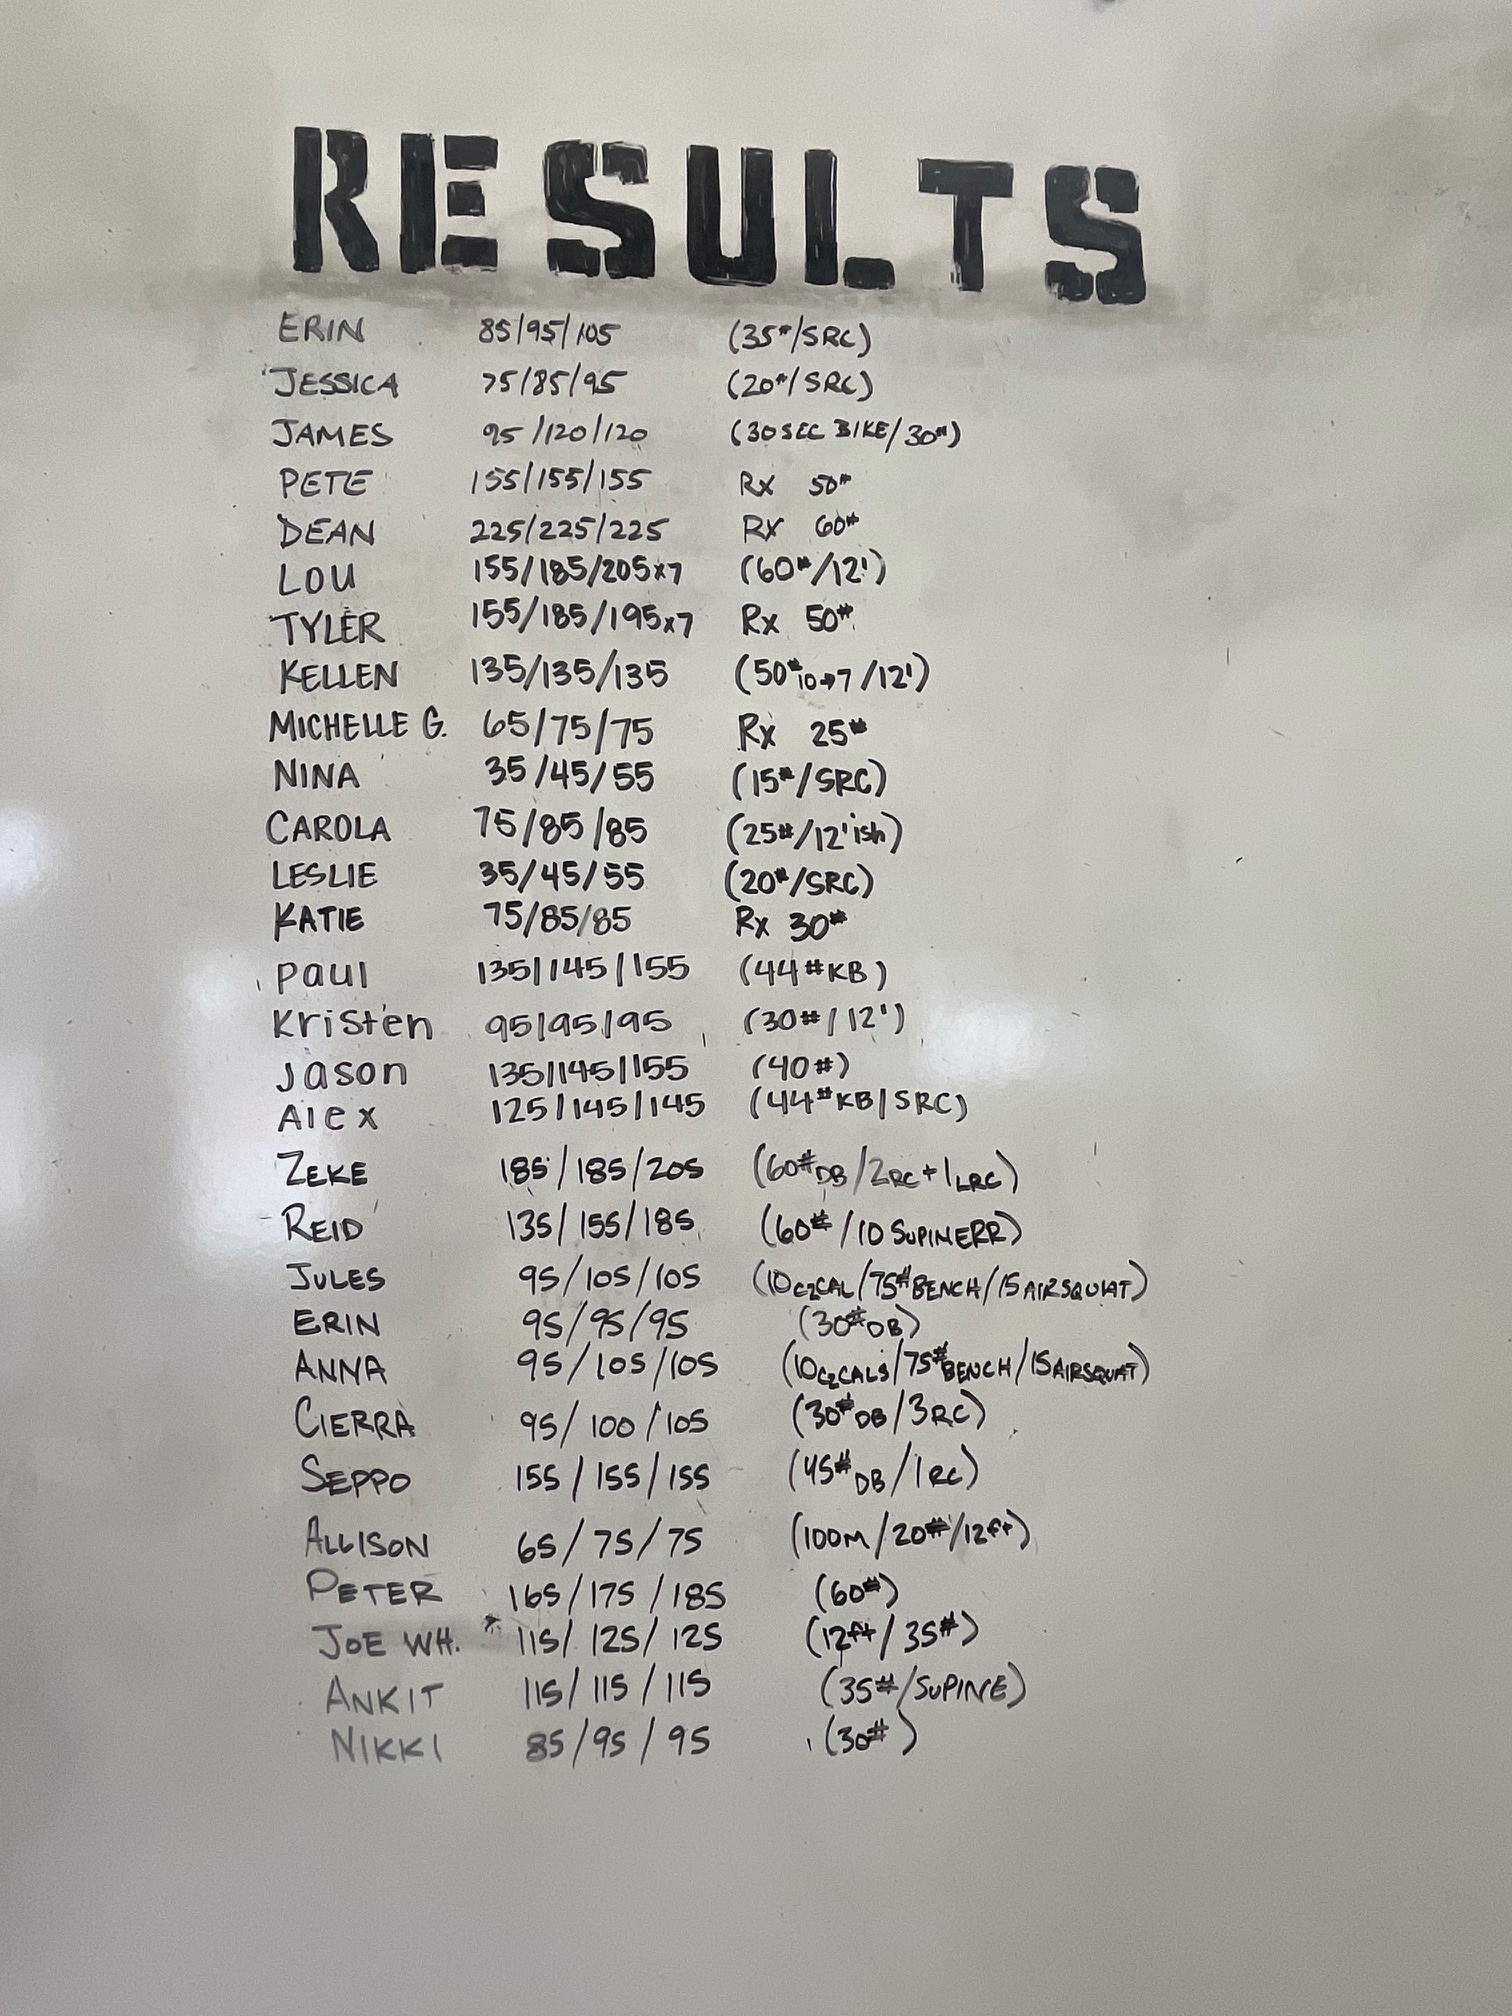 RESULTS
ERIN 85/95/105 (35#/SRC)
JESSICA 75/85/95 (20#/SRC)
JAMES 95/120/120 (30SEC BIKE/30#)
PETE 155/155/155 Rx 50#
DEAN 225/225/225 Rx 60#
LOU 155/185/205x7 (60#/12')
TYLER 155/185/195x7 Rx 50#
KELLEN 135/135/135 (50#10→7/12')
MICHELLE G. 65/75/75 Rx 25#
NINA 35/45/55 (15#/SRC)
CAROLA 75/85/85 (25#/12'ish)
LESLIE 35/45/55 (20#/SRC)
KATIE 75/85/85 Rx 30#
Paul 135/145/155 (44#KB)
Kristen 95/95/95 (30#/12')
Jason 135/145/155 (40#)
Alex 125/145/145 (44#KB/SRC)
ZEKE 185/185/205 (60#DB/2RC+1LRC)
REID 135/155/185 (60#/10 SUPINERR)
JULES 95/105/105 (10C2CAL/75#BENCH/15AIRSQUAT)
ERIN 95/95/95 (30#DB)
ANNA 95/105/105 (10C2CALS/75#BENCH/15AIRSQUAT)
CIERRA 95/100/105 (30#DB/3RC)
SEPPO 155/155/155 (45#DB/1RC)
ALLISON 65/75/75 (100M/20#/12ft)
PETER 165/175/185 (60#)
JOE WH. * 115/125/125 (12ft/35#)
ANKIT 115/115/115 (35#/SUPINE)
NIKKI 85/95/95 (30#)